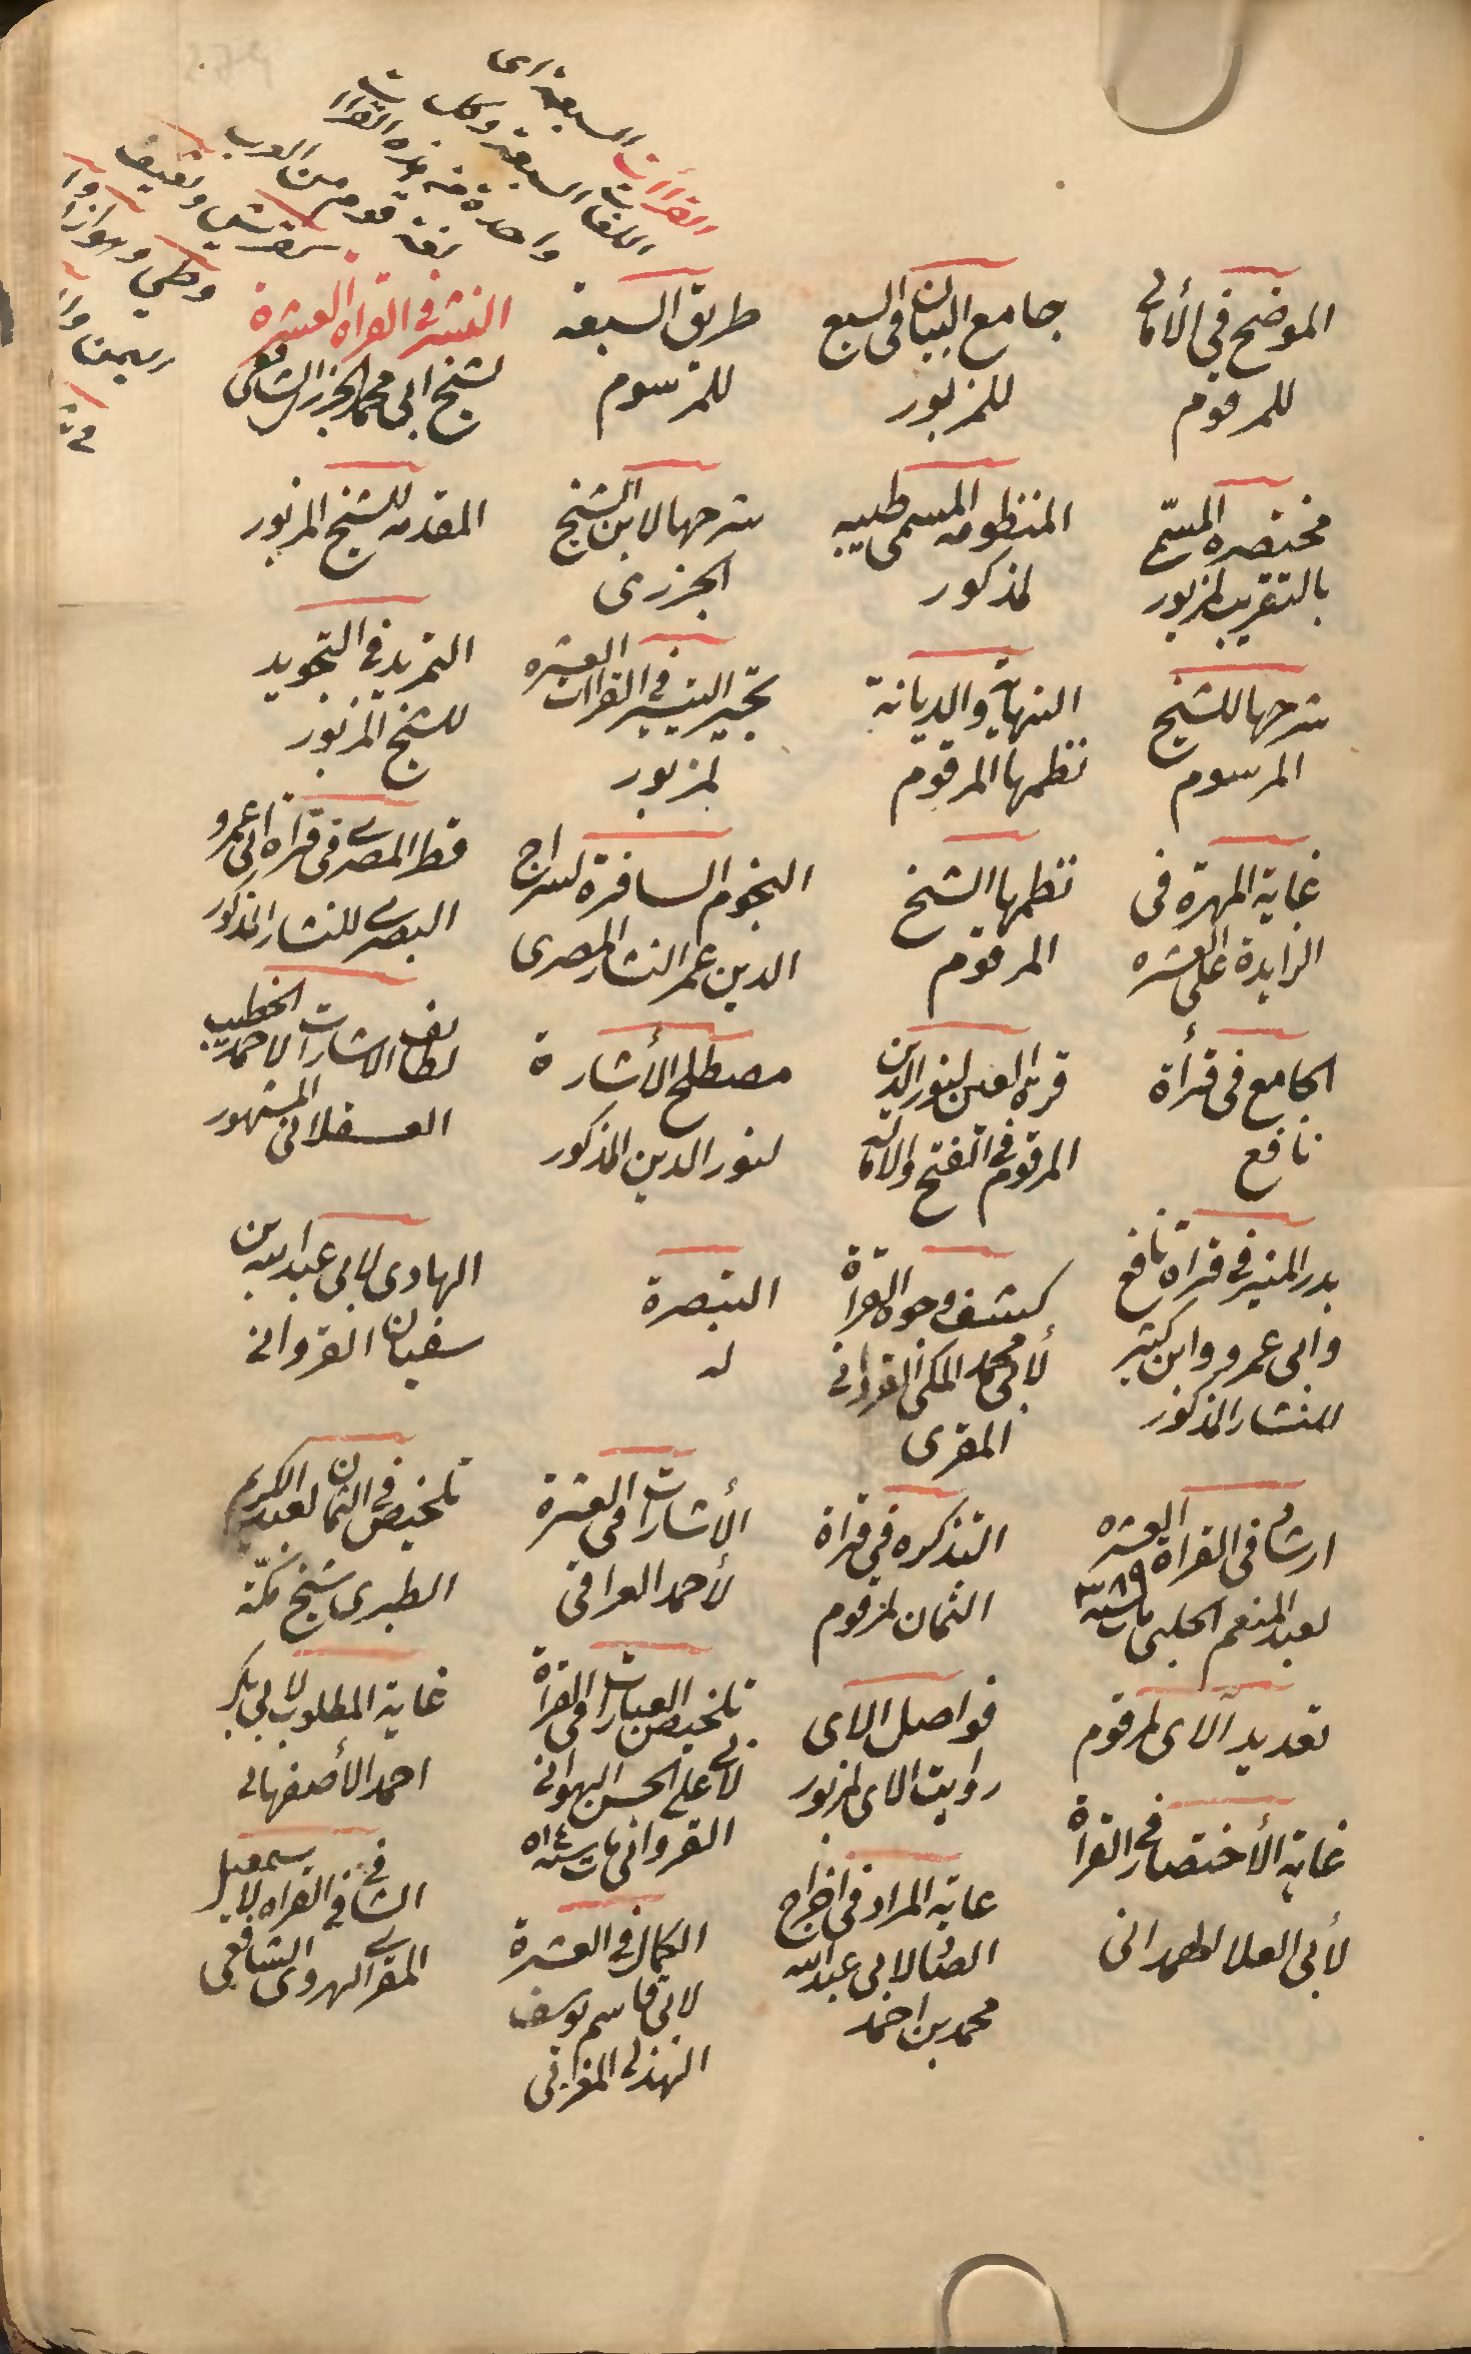 القراأت السبعة اى
اللغات السبعة وكانت
واحدة منه هذه القراات
لغة قوم من العرب
كقريش وثقيف
وطى وهوازن
الموضح فى الأمالى
للمرقوم
جامع البيان فى السبع
للمزبور
طريق السبعه
للمرسوم
النشر فى القراة العشرة
لشيخ ابى محمد الجزرى الشافعى
مختصره المسمى
بالتقريب لمزبور
المنظومه المسمى طيبه
لمذكور
شرحها لابن الشيخ
الجزرى
المقدمه للشيخ المزبور
شرحها للشيخ
المرسوم
النهاية والديانة
نظمها المرقوم
تحبير التيسير فى القراات العشره
لمزبور
التمهيد فى التجويد
للشيخ المزبور
غاية المهرة فى
الزايدة على العشره
نظمها الشيخ
المرقوم
النجوم السافرة لسراج
الدين عمر النشار المصرى
قطر المصرى فى قراة ابى عمرو
البصرى للنشار المذكور
الجامع فى قرأة
نافع
قرة العين لنور الدين
المرقوم فى الفتح والامالة
مصطلح الأشارة
لنور الدين المذكور
لطائف الاشارات لاحمد الخطيب
العسقلانى المشهور
بدر المنير فى قراة نافع
وابى عمرو وابن كثير
للنشار المذكور
كشف وجوه القراة
لأبى محمد المكى القروانى
المقرى
التبصرة
له
الهادى لابى عبدالله بن
سفيان القروانى
ارشاد فى القراة العشره
لعبد المنعم الحلبى مات سنه ٣٨٩
التذكره فى قراة
الثمان لمرقوم
الأشارات فى العشرة
لأحمد العراقى
تلخيص فى الثمان لعبد الكريم
الطبرى شيخ مكّة
تعديد الاى لمرقوم
فواصل الاى
روايت الاى لمزبور
تلخيص العبارات فى القراة
لابى على الحسن الهوانى
القروانى مات سنه ٥١٤
غاية المطلوب لابى بكر
احمد الأصفهانى
غاية الأختصار فى القراة
لأبى العلا الهمدانى
غاية المراد فى اخراج
الضاد لابى عبدالله
محمد بن احمد
الكمال فى العشرة
لابى قاسم يوسف
الهذلى المغرابى
الشافى فى القراه لاسمعيل
المقرى الهروى الشافعى